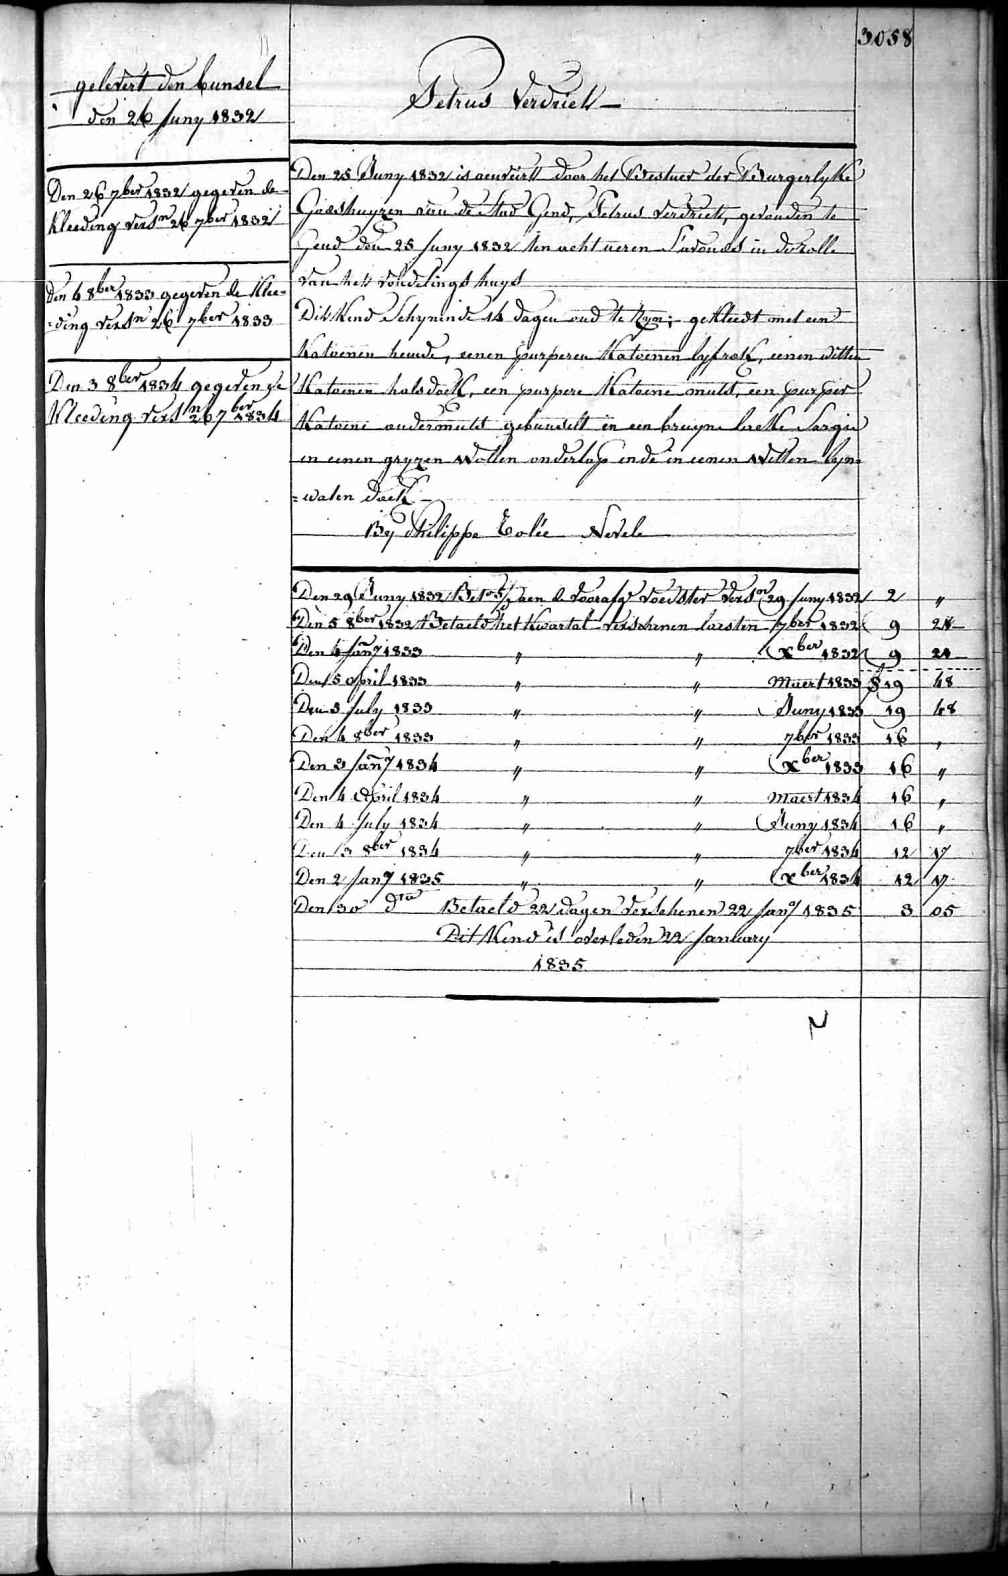 3058
gelevert den bunsel
den 26 Juny 1832
Den 26 7ber 1832 gegeven de
kleeding versn 26 7ber 1832
Den 4 8ber 1833 gegeven de klee=
=ding versn 26 7ber 1833
Den 3 8ber 1834 gegeven de
kleeding versn 26 7ber 1834
Petrus Verdriet
Den 25 Juny 1832 is aenveirt door het Bestuer der Burgerlyke
Godshuyzen van de Stad Gend, Petrus Verdriet, gevonden te
Gend den 25 Juny 1832 ten acht ueren s'avonds in de rolle
van het vondelings huys
Dit Kind Schynende 14 dagen oud te zyn; gekleedt met een
Katoenen hemde, eenen purperen Katoenen lyfrok, eenen witten
Katoenen halsdoek, een purpere Katoene muts, een purper
Katoene ondermuts gebunselt in een bruyne Sargie
en eenen gryzen Wollen onderlap ende in eenen Witten lyn=
=waten doek
By Philippe Colée Nevele
Den 29 Juny 1832 Bet aen d voorafg voedster versn 29 Juny 1832 2 "
Den 5 8ber 1832 Betaeld het Kwartal verschenen laesten 7ber 1832 9 24
Den 4 Jany 1833 " " Xber 1832 9 24
Den 5 April 1833 " " Maert 1833 19 48
Den 3 July 1833 " " Juny 1833 19 48
Den 4 8ber 1833 " " 7ber 1833 16 "
Den 3 Jany 1834 " " Xber 1833 16 "
Den 4 April 1834 " " Maert 1834 16 "
Den 4 July 1834 " " Juny 1834 16 "
Den 3 8ber 1834 " " 7ber 1834 12 17
Den 2 Jany 1835 " " Xber 1834 12 17
Den 30 dto Betaeld 22 dagen verschenen 22 Jany 1835 3 05
Dit Kind is overleden 22 January
1835